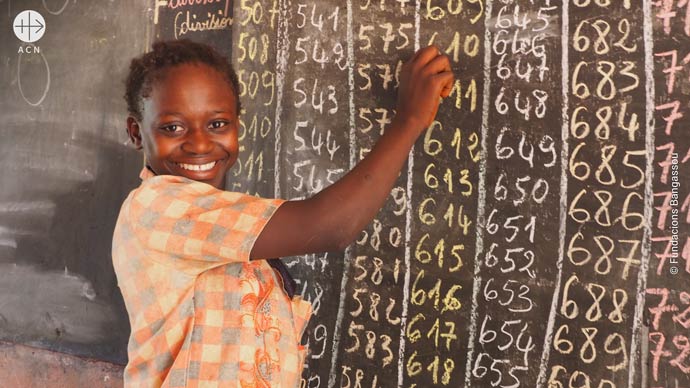 ACN
(division)
507
508
509
510
511
541
542
543
544
545
575
580
581
582
583
584
609
610
611
612
613
614
615
616
617
618
645
646
647
648
649
650
651
652
653
654
655
682
683
684
685
686
687
688
689
690
© Fundacions Bangassou